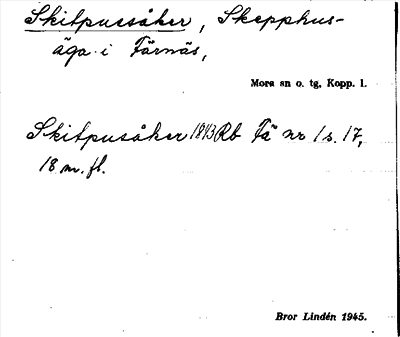 Skitpussåker, Skepphus-
äga i Färnäs,
Mora sn o. tg, Kopp. l.
Skitpusåker 1843 Rb Fä nr 1 s. 17,
18 m. fl.
Bror Lindén 1945.